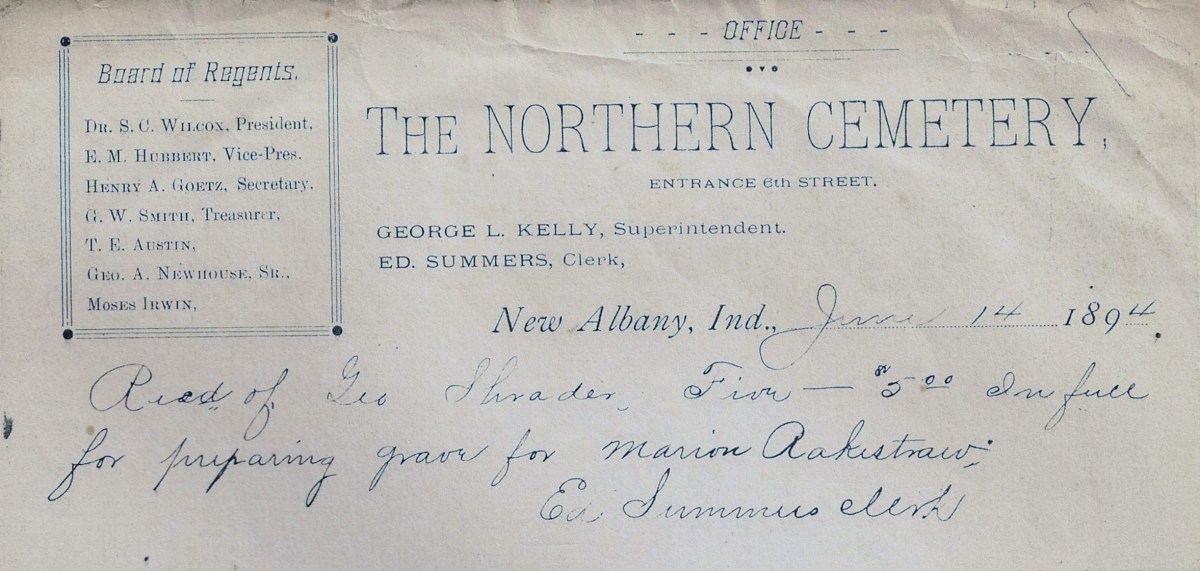 - - - OFFICE - - -
Board of Regents.
DR. S. C. WILCOX, President,
E. M. HUBBERT, Vice-Pres.
HENRY A. GOETZ, Secretary.
G. W. SMITH, Treasurer,
T. E. AUSTIN,
GEO. A. NEWHOUSE, SR.,
MOSES IRWIN,
THE NORTHERN CEMETERY,
ENTRANCE 6th STREET.
GEORGE L. KELLY, Superintendent.
ED. SUMMERS, Clerk,
New Albany, Ind., June 14 1894.
Recd of Geo Shrader, Five — $5 00 In full
for preparing grave for Marion Rakestraw.
Ed Summers clerk